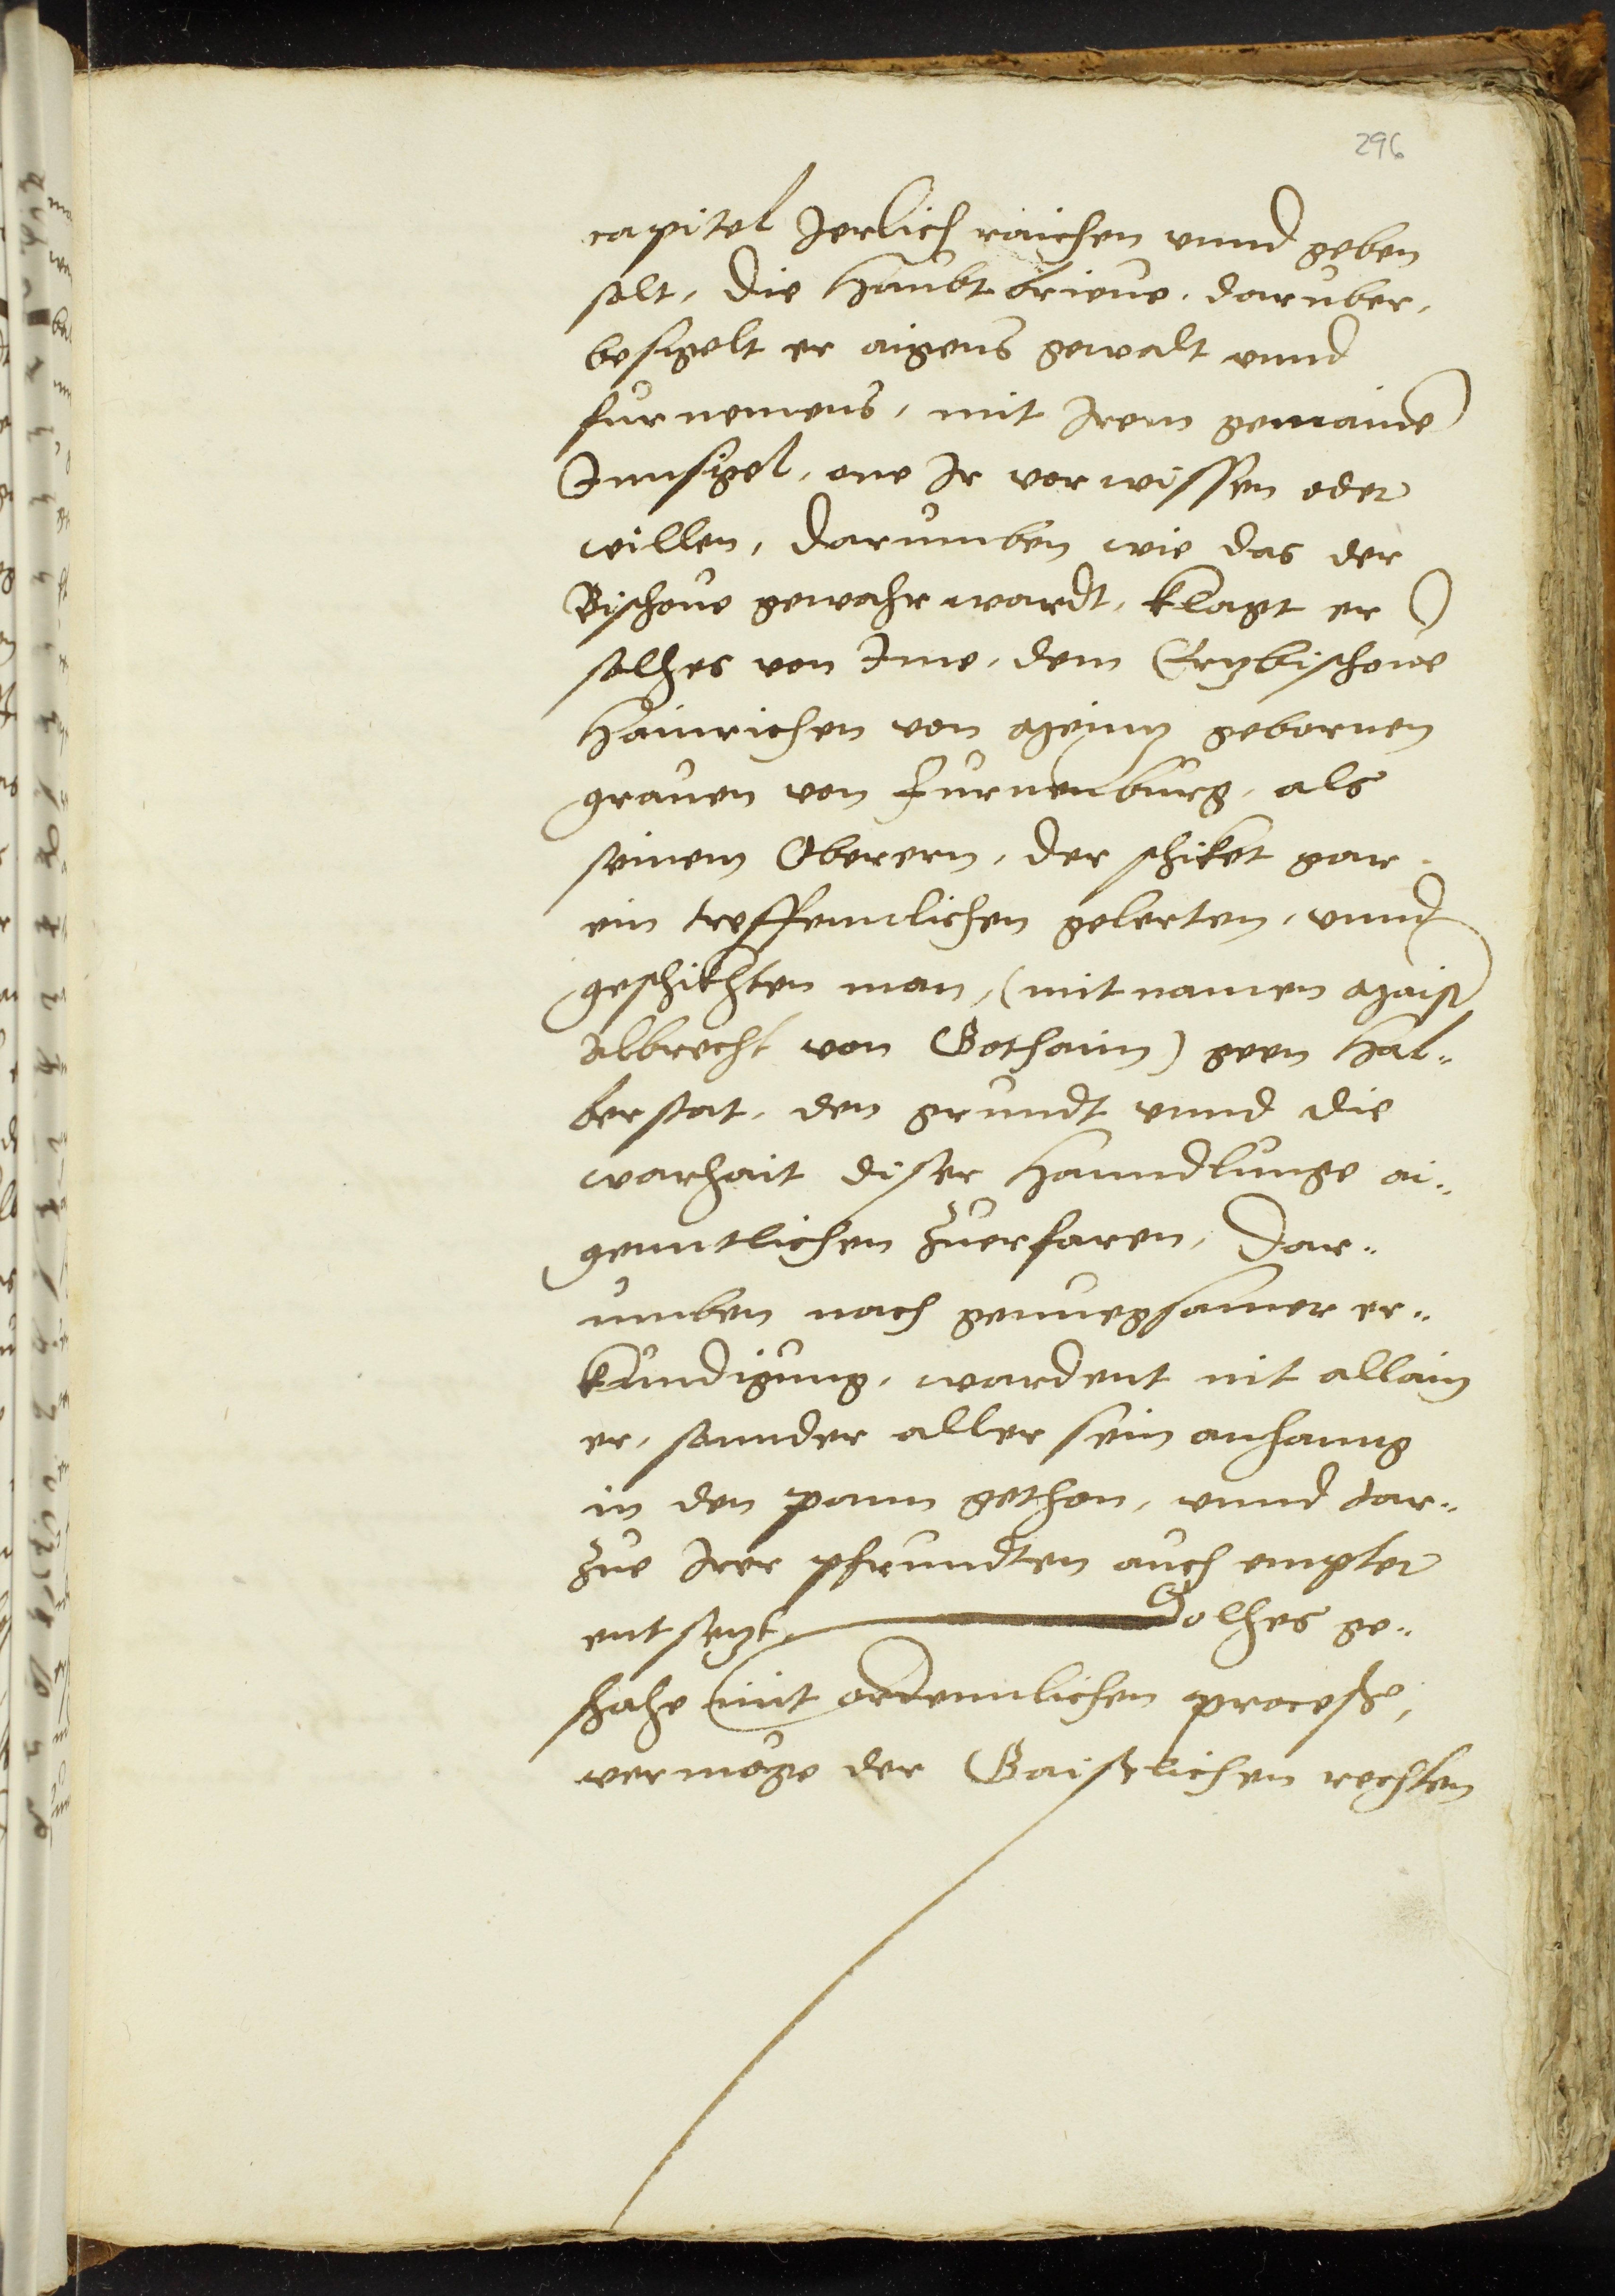 296
capitel Jerlich raichen vnnd geben
solt, die haubtbrieue, daruber,
besigelt er aigens gewalt vnnd
furnemens, mit Jrem gemaine
Jnnsigel, one Jr vorwissen oder
willen, darumben wie das der
Bischoue gewahr wardt, klagt er
solhes von Jme, dem Ertzbischoue
Hainrichen von Meintz gebornen
grauen von Furnenburg, als
seinem Oberern, der schiket gar
ein treffennlichen gelerten, vnnd
geschikhten man, (mit namen Maist
Albrecht von Gothaim) geen Hal=
berstat, den grundt vnnd die
warhait diser Hanndlunge ai=
genntlichen zuerfaren, Dar=
umben nach genuegsamer er=
kundigung, wardent nit allain
er, sonnder aller sein anhanng
in den pann gethon, vnnd dar=
zue Jrer pfrundten auch empter
entsetzt, Solhes ge=
schahe mit ordennlichen process,
vermöge der Gaistlichen rechten